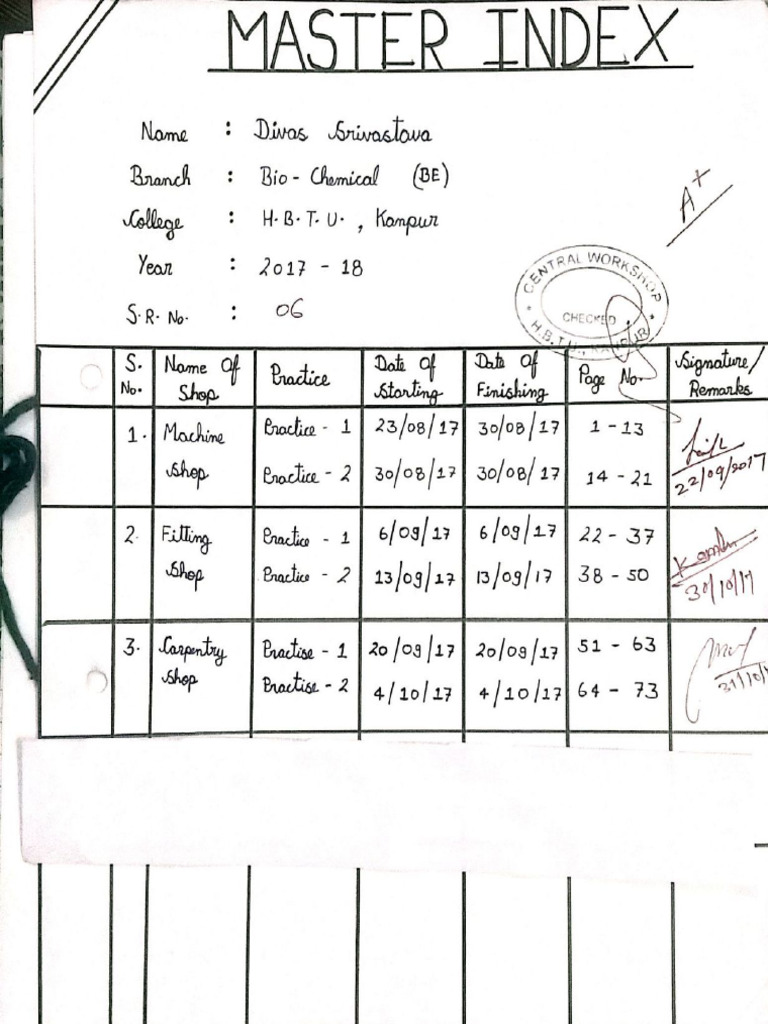 MASTER INDEX
Name : Divas Srivastava
Branch : Bio-Chemical (BE)
College : H.B.T.U., Kanpur
Year : 2017 - 18
S.R. No. : 06
A+
CENTRAL WORKSHOP
CHECKED
H.B.T.U., KANPUR
S. No. Name Of Shop Practice Date Of Starting Date Of Finishing Page No. Signature/ Remarks
1. Machine Practice - 1 23/08/17 30/08/17 1 - 13
Shop Practice - 2 30/08/17 30/08/17 14 - 21
22/09/2017
2. Fitting Practice - 1 6/09/17 6/09/17 22 - 37
Shop Practice - 2 13/09/17 13/09/17 38 - 50
30/10/17
3. Carpentry Practise - 1 20/09/17 20/09/17 51 - 63
Shop Practise - 2 4/10/17 4/10/17 64 - 73
31/10/